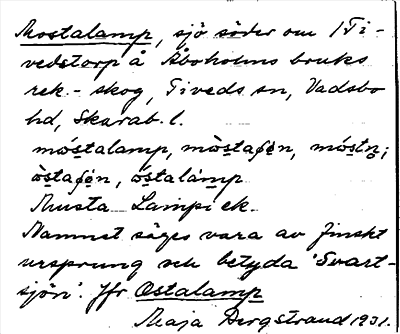 Mostalamp, sjö söder om Ti-
vedstorp å Åboholms bruks
rek.-skog, Tiveds sn, Vadsbo
hd, Skarab. l.
móstalamp, mòstasjön, móstn;
òstasjön, óstalàmp
Musta Lampi ek.
Namnet säges vara av finskt
ursprung och betyda 'Svart-
sjön'. Jfr Ostalamp
Maja Bergstrand 1931.